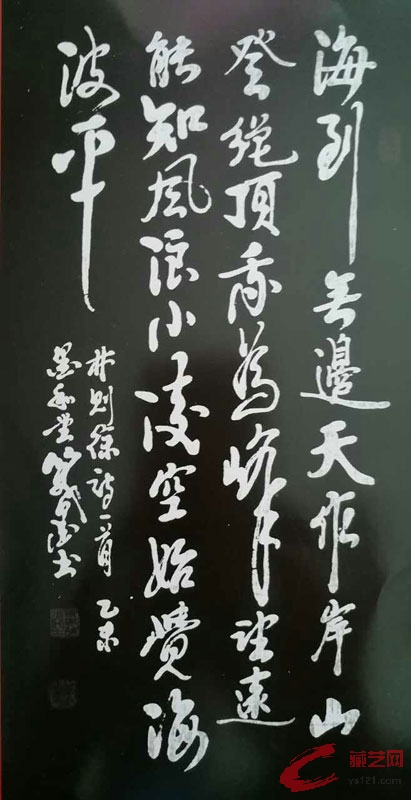 海到无邊天作岸山
登绝頂我為峰望遠
能知風浪小凌空始覺海
波平
林则徐詩一首 乙未
墨和堂 书
藏艺网
ys121.com